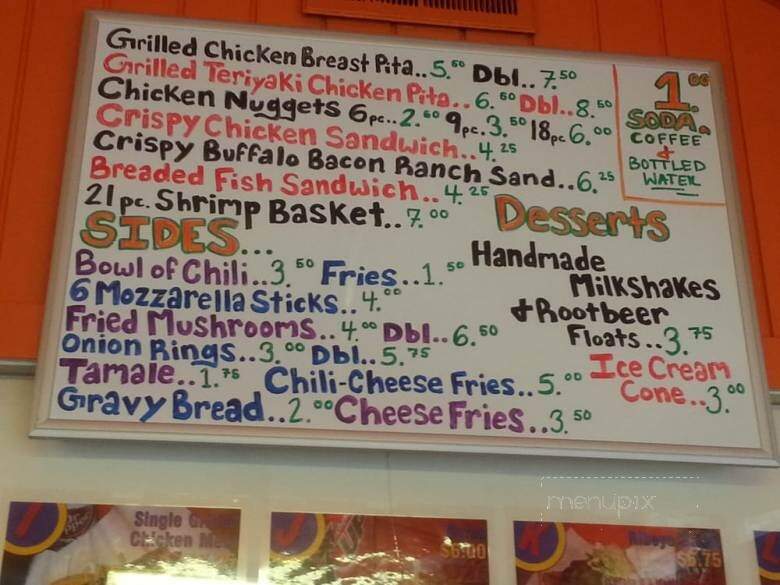 Grilled Chicken Breast Pita..5.50 Dbl..7.50
Grilled Teriyaki Chicken Pita..6.50 Dbl..8.50
Chicken Nuggets 6pc..2.60 9pc.3.50 18pc 6.00
Crispy Chicken Sandwich..4.25
Crispy Buffalo Bacon Ranch Sand..6.25
Breaded Fish Sandwich..4.25
21 pc. Shrimp Basket..7.00
1.00
SODA.
COFFEE
&
BOTTLED
WATER
SIDES...
Bowl of Chili..3.50 Fries..1.50
6 Mozzarella Sticks..4.00
Fried Mushrooms..4.00 Dbl..6.50
Onion Rings..3.00 Dbl..5.75
Tamale..1.75 Chili-Cheese Fries..5.00
Gravy Bread..2.00 Cheese Fries..3.50
Desserts
Handmade
Milkshakes
& Rootbeer
Floats..3.75
Ice Cream
Cone..3.00
menupix
I
Single
Chicken
J
$6.00
K
$5.75